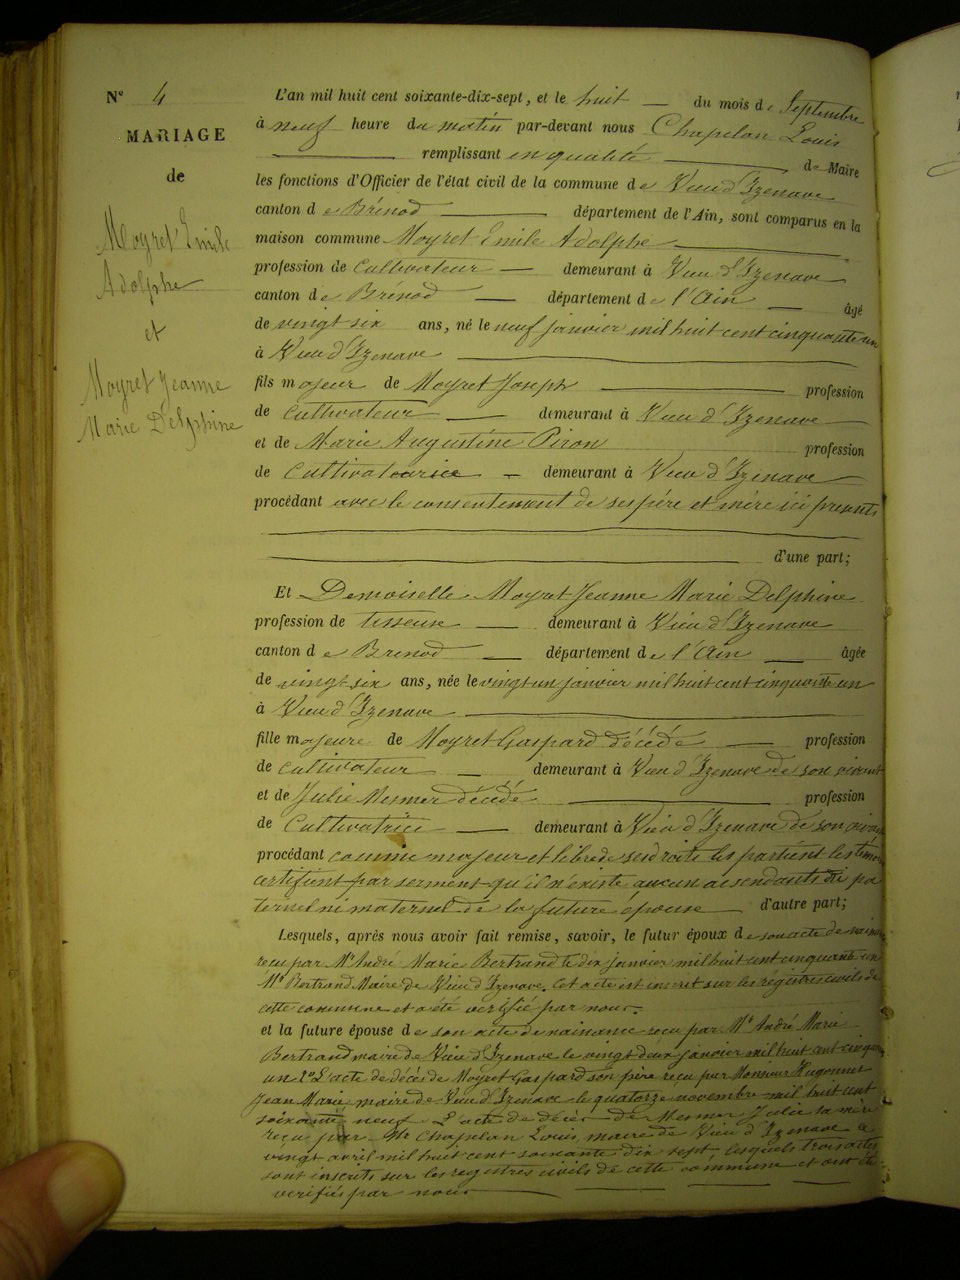 N° 4
MARIAGE
de
Moyret Emile
Adolphe
et
Moyret Jeanne
Marie Delphine
L'an mil huit cent soixante-dix-sept, et le huit du mois de Septembre
à neuf heure du matin par-devant nous Chapelan Louis
remplissant en qualité de Maire
les fonctions d'Officier de l'état civil de la commune de Vieu d'Izenave
canton de Brénod département de l'Ain, sont comparus en la
maison commune Moyret Emile Adolphe
profession de Cultivateur demeurant à Vieu d'Izenave
canton de Brénod département de l'Ain âgé
de vingt six ans, né le neuf janvier mil huit cent cinquante un
à Vieu d'Izenave
fils majeur de Moyret Joseph profession
de Cultivateur demeurant à Vieu d'Izenave
et de Marie Augustine Piron profession
de Cultivatrice demeurant à Vieu d'Izenave
procédant avec le consentement de ses père et mère ici présents
d'une part;
Et Demoiselle Moyret Jeanne Marie Delphine
profession de tisseuse demeurant à Vieu d'Izenave
canton de Brenod département de l'Ain âgée
de vingt six ans, née le vingt un janvier mil huit cent cinquante un
à Vieu d'Izenave
fille majeure de Moyret Gaspard décédé profession
de cultivateur demeurant à Vieu d'Izenave de son vivant
et de Julie Mesmer décédé profession
de Cultivatrice demeurant à Vieu d'Izenave de son vivant
procédant comme majeur et libre de ses droits les
certifient par serment qu'il n'existe aucun asendants ni pa
ternel ni maternel de la future épouse d'autre part;
Lesquels, après nous avoir fait remise, savoir, le futur époux de son acte de
reçu par Mr André Marie Bertrand le dix janvier mil huit cent cinquante un
Mr Bertrand Maire de Vieu d'Izenave. Cet acte est inscrit sur les régistres civils de
cette commune et a été vérifié par nous.
et la future épouse de son acte de naisance reçu par Mr André Marie
Bertrand maire de Vieu d'Izenave le vingt deux janvier mil huit cent cinquante
un 2° L'acte de décès de Moyret Gaspard son père reçu par Monsieur Hugonnet
Jean Marie maire de Vieu d'Izenave le quatorze novembre mil huit cent
soixante neuf L'acte de décès de Mesmer Julie sa mère
reçu par Mr Chapelan Louis, maire de Vieu d'Izenave le
vingt avril mil huit cent soixante dix sept lesquels trois actes
sont inscrits sur les registres civils de cette commune et ont été
vérifiés par nous